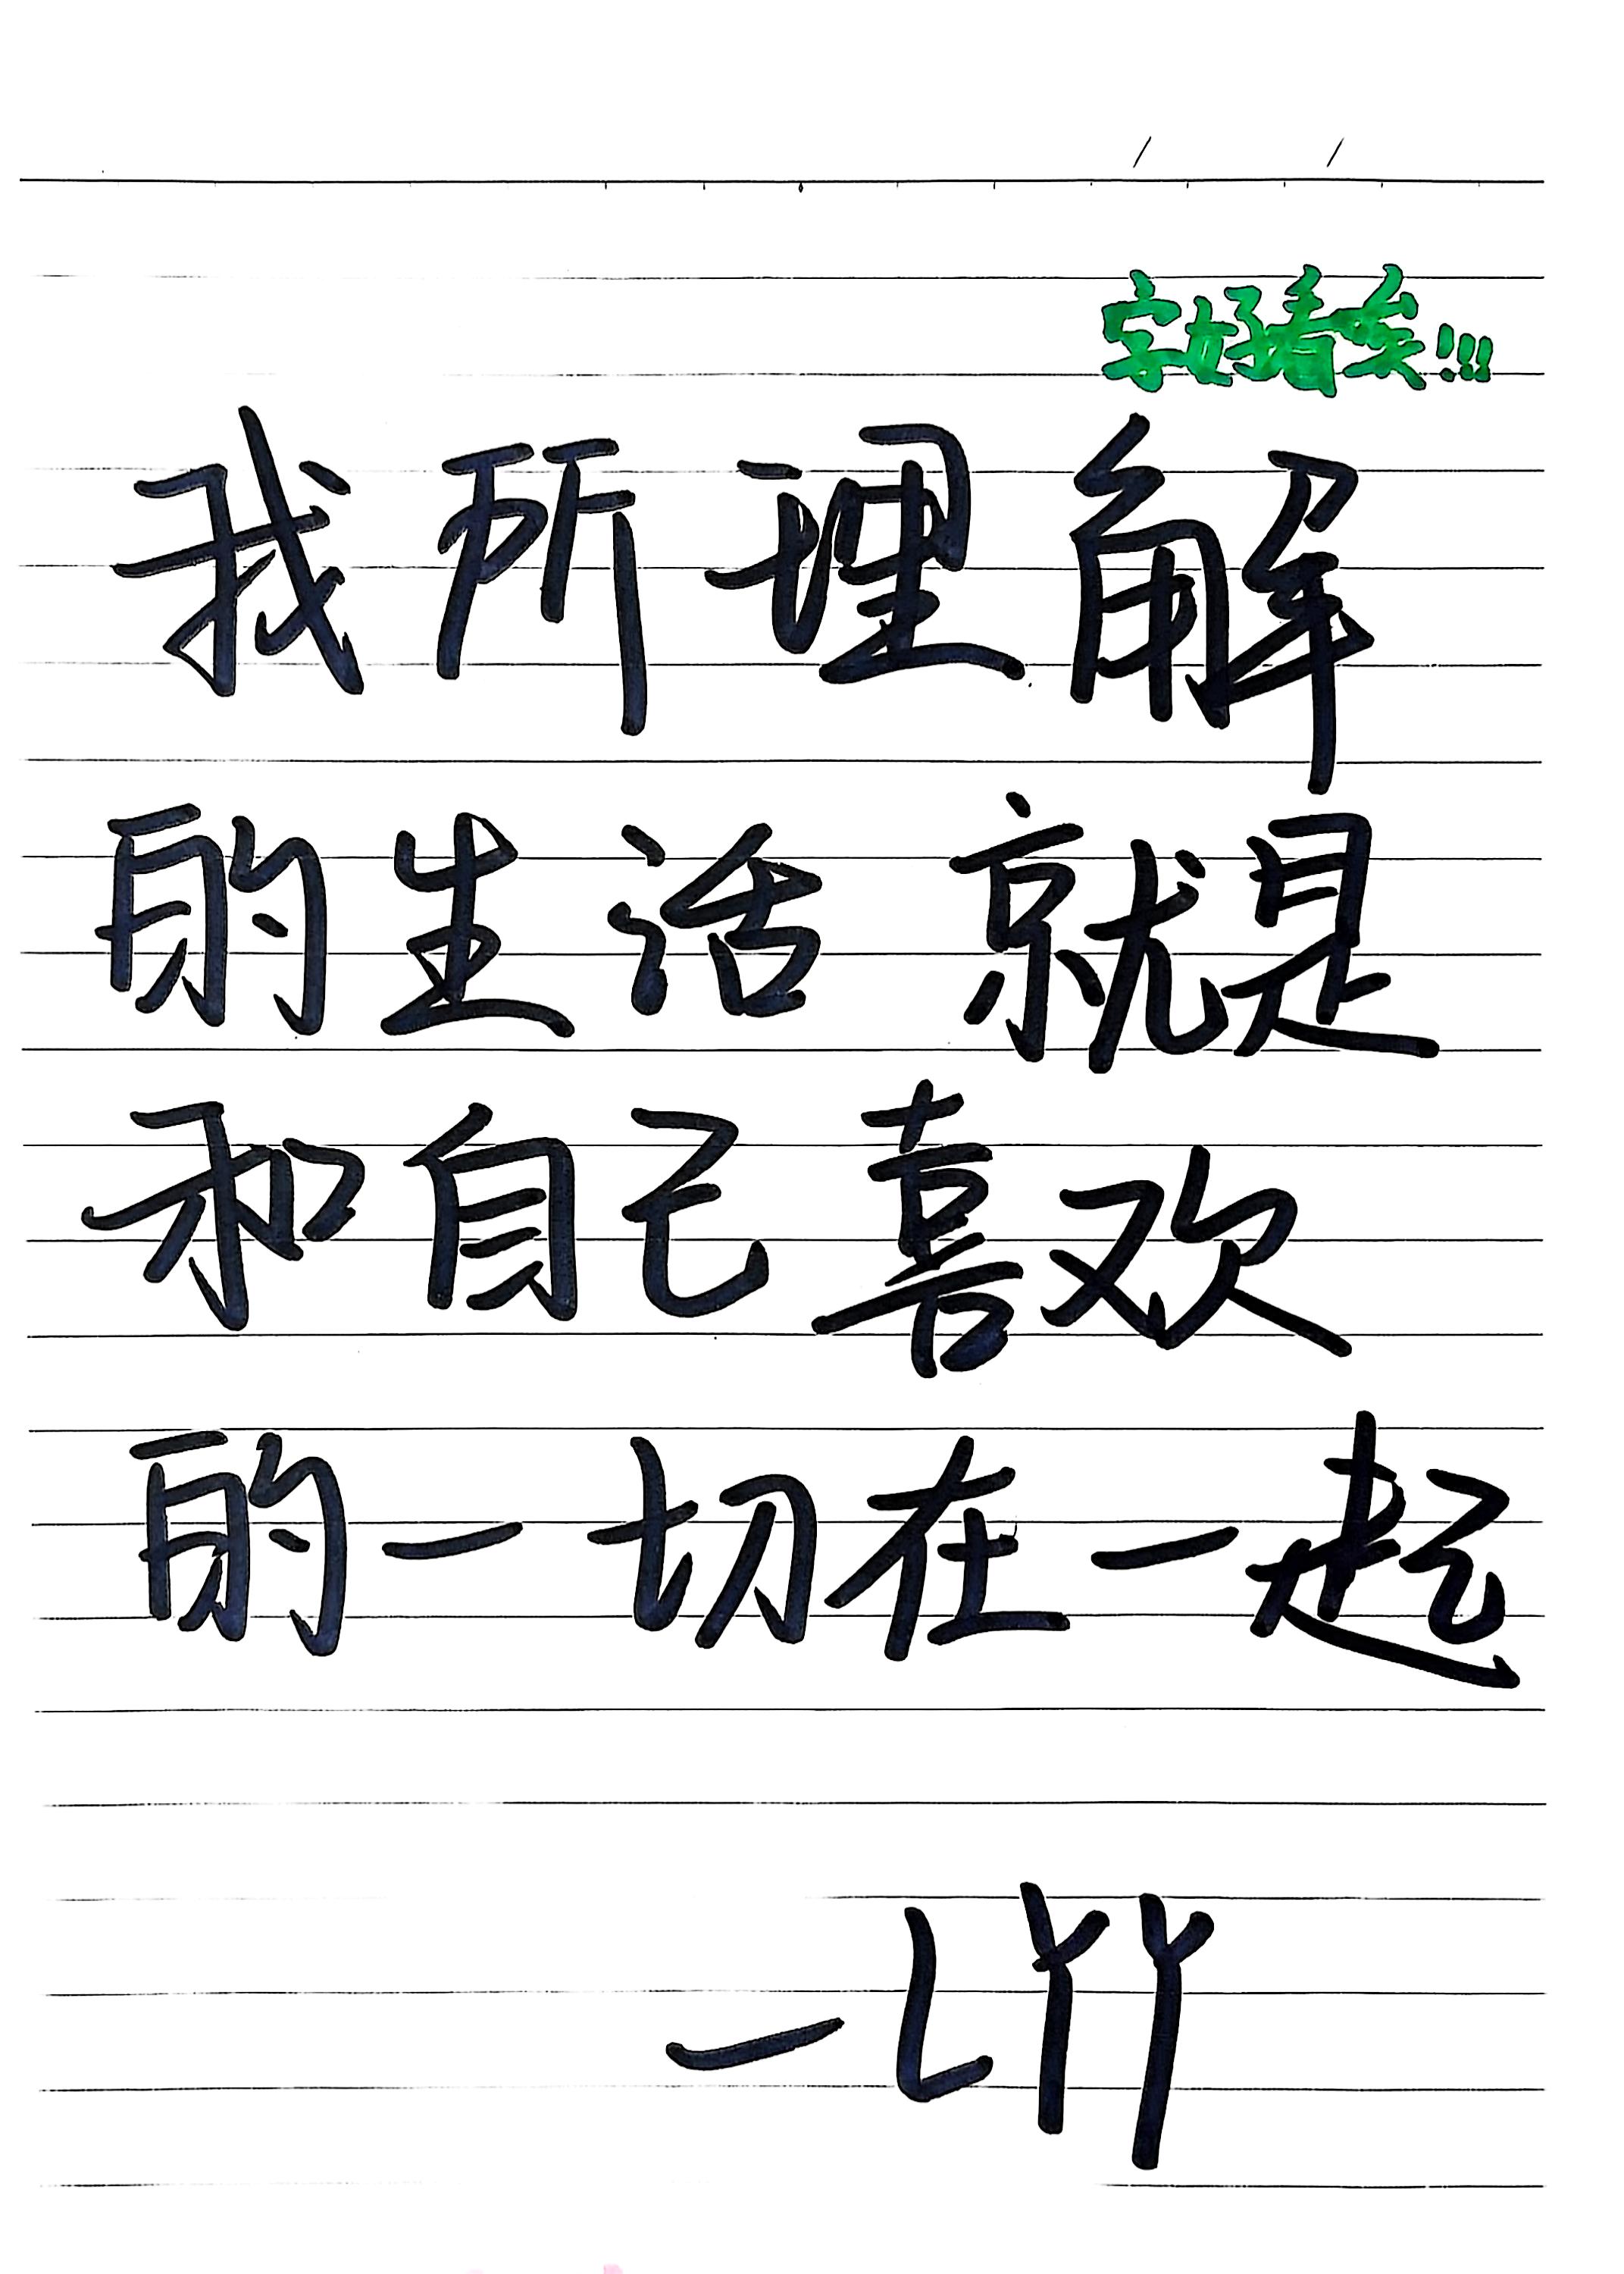 字好看唉!!!
我所理解
的生活就是
和自己喜欢
的一切在一起
—LYY